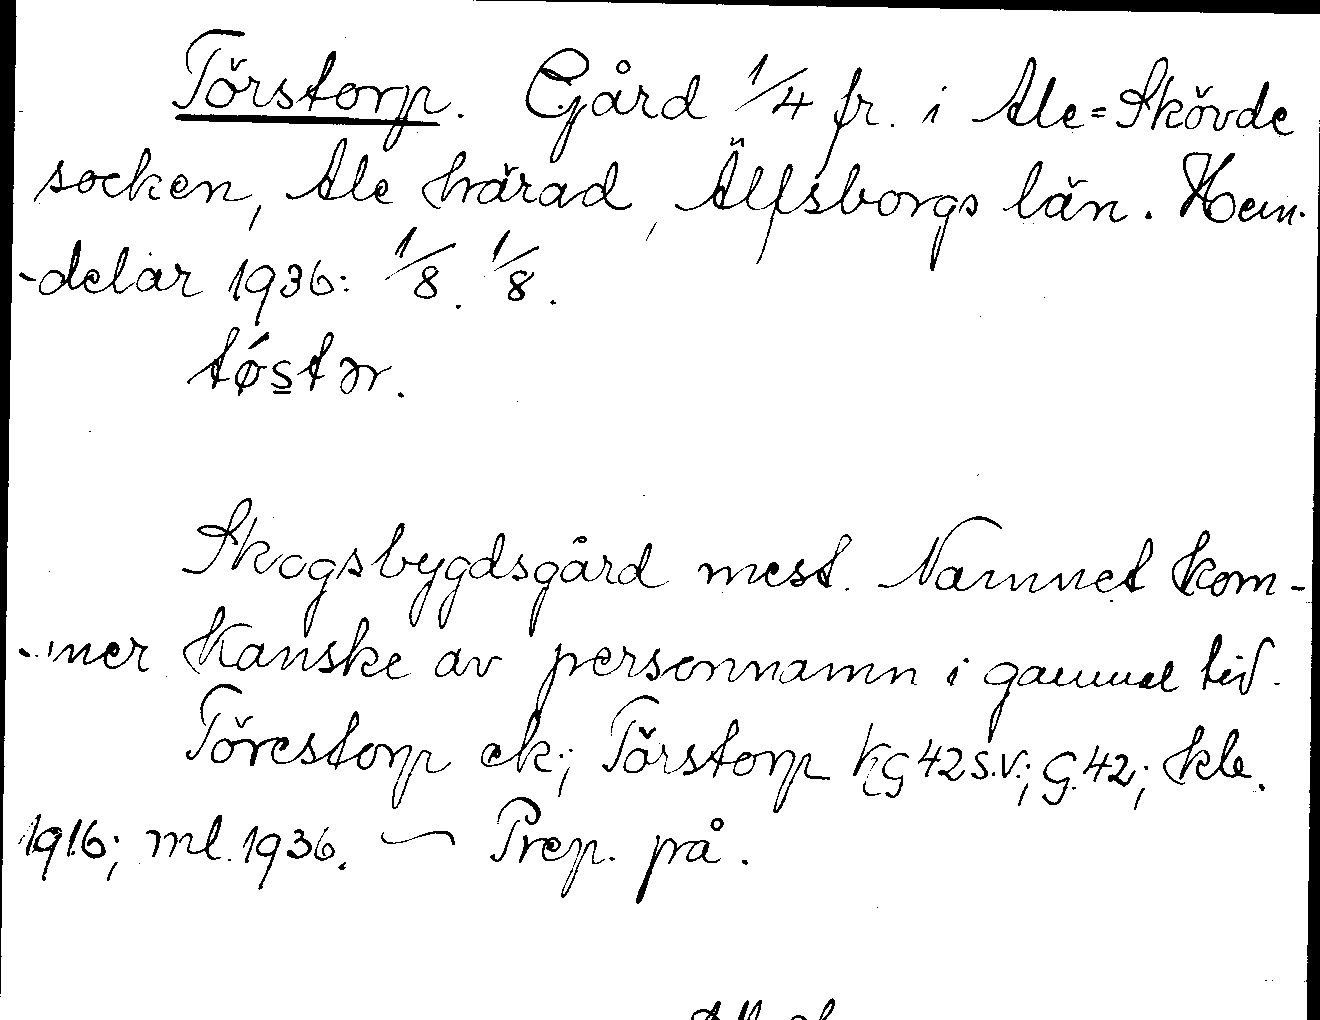 Törstorp. Gård 1/4 fr. i Ale=Skövde
socken, Ale härad, Älfsborgs län. Hem.
-delar 1936: 1/8. 1/8.
tǿstər.
Skogsbygdsgård mest. Namnet kom-
-mer kanske av personnamn i gammal tid.
Törestorp ek; Törstorp KG42S.V.; G.42; kle.
1916; ml. 1936. — Prep. på.